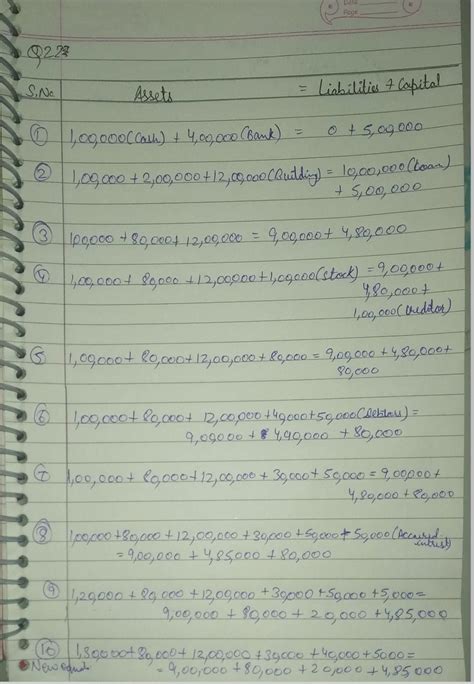 Date
Page
Q22
S.No Assets = Liabilities + Capital
① 1,00,000(Cash) + 4,00,000(Bank) = 0 + 5,00,000
② 1,00,000 + 2,00,000 + 12,00,000(Building) = 10,00,000(Loan)
+ 5,00,000
③ 100,000 + 80,000 + 12,00,000 = 9,00,000 + 4,80,000
④ 1,00,000 + 80,000 + 12,00,000 + 1,00,000(Stock) = 9,00,000 +
4,80,000 +
1,00,000(Creditor)
⑤ 1,00,000 + 80,000 + 12,00,000 + 80,000 = 9,00,000 + 4,80,000 +
80,000
⑥ 1,00,000 + 80,000 + 12,00,000 + 40,000 + 50,000(Debtors) =
9,00,000 + 4,90,000 + 80,000
⑦ 1,00,000 + 80,000 + 12,00,000 + 30,000 + 50,000 = 9,00,000 +
4,80,000 + 80,000
⑧ 1,00,000 + 80,000 + 12,00,000 + 30,000 + 50,000 + 50,000(Accrued
intrest)
= 9,00,000 + 4,85,000 + 80,000
⑨ 1,20,000 + 80,000 + 12,00,000 + 30,000 + 50,000 + 5,000 =
9,00,000 + 80,000 + 20,000 + 4,85,000
⑩ 1,30,000 + 80,000 + 12,00,000 + 30,000 + 40,000 + 5000 =
New = 9,00,000 + 80,000 + 20,000 + 4,85,000